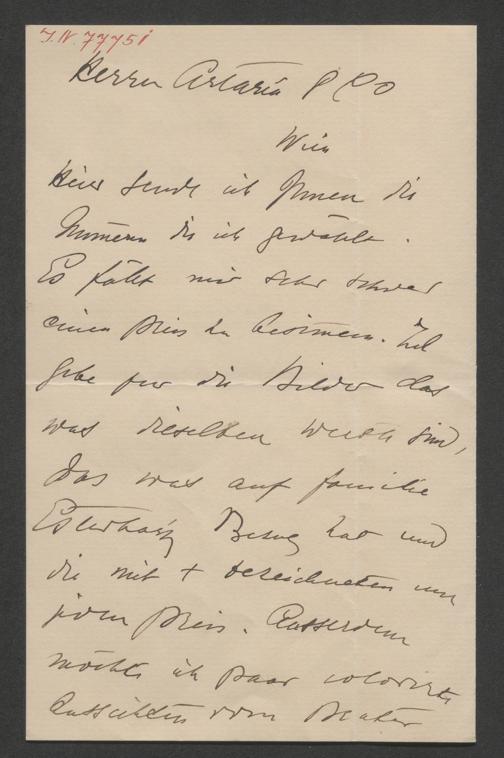 J.N. 77751
Herrn Artaria & Co
Wien
Hier sende ich Ihnen die
Numern die ich gewählt.
Es fällt mir sehr schwer
einen Preis zu bestimmen. Ich
gebe für die Bilder das
was dieselben werth sind,
das was auf familie
Esterházy Bezug hat und
die mit + bezeichneten um
jeden Preis. Ausserdem
möchte ich paar colorirte
Ansichten vom Prater